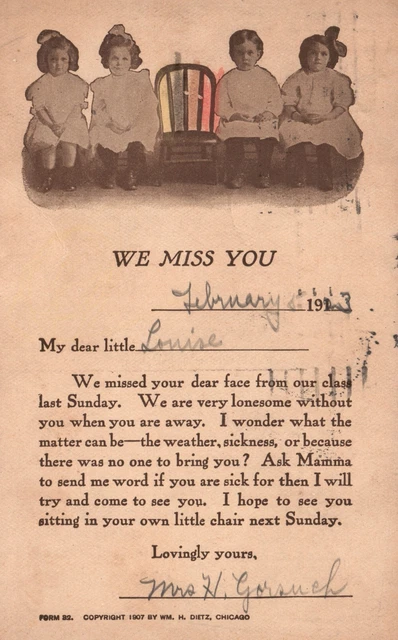 WE MISS YOU
February 5 1913
My dear little Louise
We missed your dear face from our class
last Sunday. We are very lonesome without
you when you are away. I wonder what the
matter can be—the weather, sickness, or because
there was no one to bring you? Ask Mamma
to send me word if you are sick for then I will
try and come to see you. I hope to see you
sitting in your own little chair next Sunday.
Lovingly yours,
Mrs H. Gorsuch
FORM 32. COPYRIGHT 1907 BY WM. H. DIETZ, CHICAGO